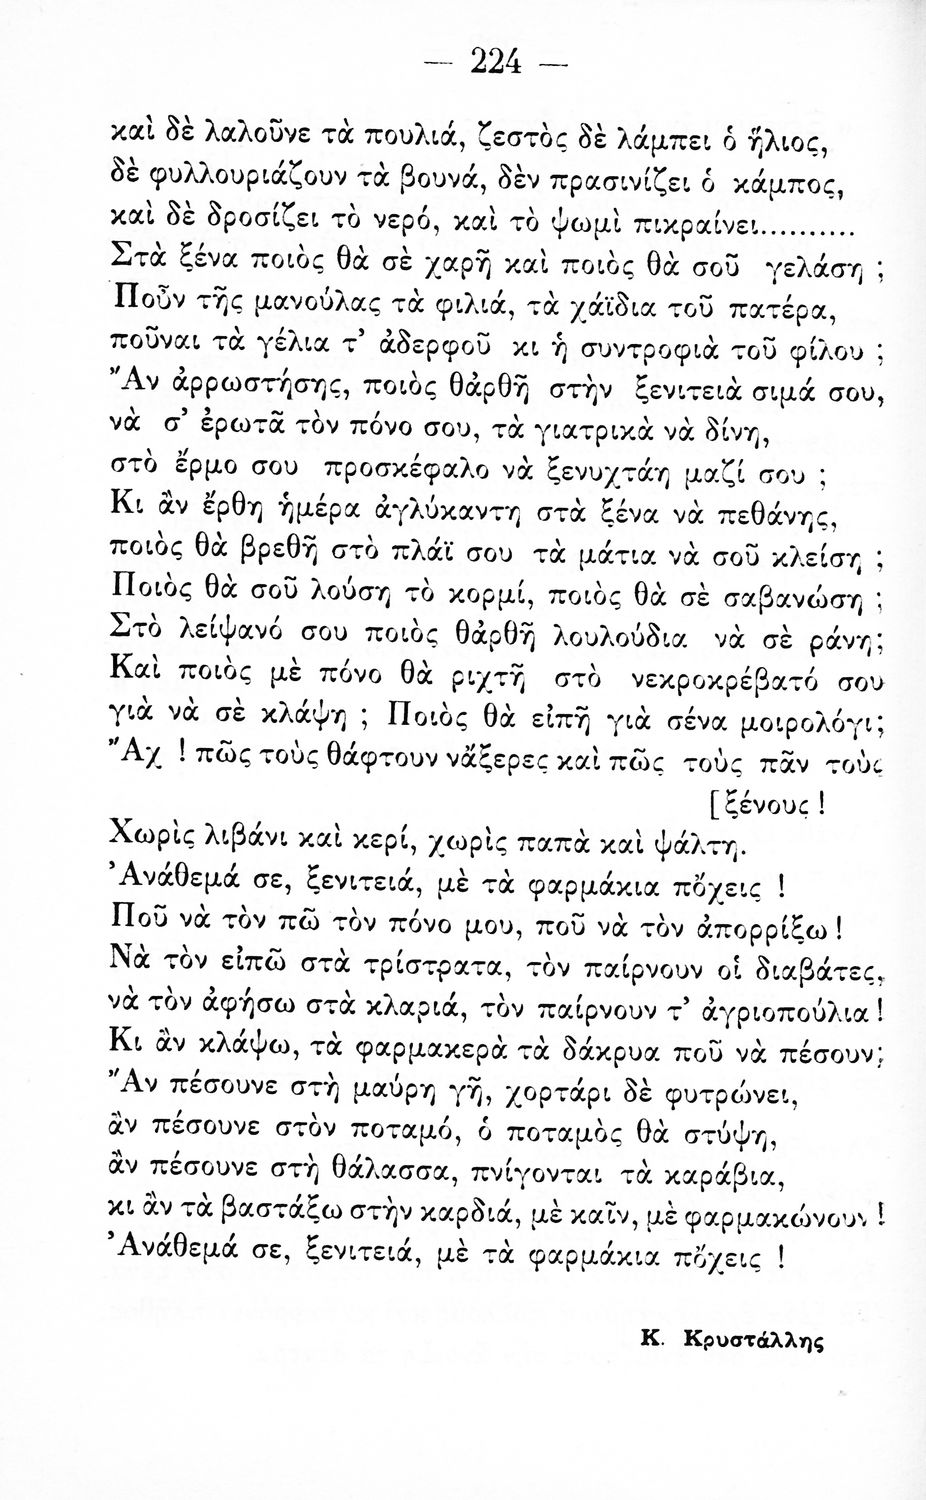 — 224 —
καὶ δὲ λαλοῦνε τὰ πουλιά, ζεστὸς δὲ λάμπει ὁ ἥλιος,
δὲ φυλλουριάζουν τὰ βουνά, δὲν πρασινίζει ὁ κάμπος,
καὶ δὲ δροσίζει τὸ νερό, καὶ τὸ ψωμὶ πικραίνει..........
Στὰ ξένα ποιὸς θὰ σὲ χαρῆ καὶ ποιὸς θὰ σοῦ γελάση ;
Ποὖν τῆς μανούλας τὰ φιλιά, τὰ χάϊδια τοῦ πατέρα,
ποὖναι τὰ γέλια τ' ἀδερφοῦ κι ἡ συντροφιὰ τοῦ φίλου ;
Ἂν ἀρρωστήσης, ποιὸς θἀρθῆ στὴν ξενιτειὰ σιμά σου,
νὰ σ' ἐρωτᾶ τὸν πόνο σου, τὰ γιατρικὰ νὰ δίνη,
στὸ ἔρμο σου προσκέφαλο νὰ ξενυχτάη μαζί σου ;
Κι ἂν ἔρθη ἡμέρα ἀγλύκαντη στὰ ξένα νὰ πεθάνης,
ποιὸς θὰ βρεθῆ στὸ πλάϊ σου τὰ μάτια νὰ σοῦ κλείση ;
Ποιὸς θὰ σοῦ λούση τὸ κορμί, ποιὸς θὰ σὲ σαβανώση ;
Στὸ λείψανό σου ποιὸς θἀρθῆ λουλούδια νὰ σὲ ράνη;
Καὶ ποιὸς μὲ πόνο θὰ ριχτῆ στὸ νεκροκρέβατό σου
γιὰ νὰ σὲ κλάψη ; Ποιὸς θὰ εἰπῆ γιὰ σένα μοιρολόγι;
Ἂχ ! πῶς τοὺς θάφτουν νἄξερες καὶ πῶς τοὺς πᾶν τοὺς
[ξένους !
Χωρὶς λιβάνι καὶ κερί, χωρὶς παπὰ καὶ ψάλτη.
Ἀνάθεμά σε, ξενιτειά, μὲ τὰ φαρμάκια πὄχεις !
Ποῦ νὰ τὸν πῶ τὸν πόνο μου, ποῦ νὰ τὸν ἀπορρίξω !
Νὰ τὸν εἰπῶ στὰ τρίστρατα, τὸν παίρνουν οἱ διαβάτες,
νὰ τὸν ἀφήσω στὰ κλαριά, τὸν παίρνουν τ' ἀγριοπούλια !
Κι ἂν κλάψω, τὰ φαρμακερὰ τὰ δάκρυα ποῦ νὰ πέσουν;
Ἂν πέσουνε στὴ μαύρη γῆ, χορτάρι δὲ φυτρώνει,
ἂν πέσουνε στὸν ποταμό, ὁ ποταμὸς θὰ στύψη,
ἂν πέσουνε στὴ θάλασσα, πνίγονται τὰ καράβια,
κι ἂν τὰ βαστάξω στὴν καρδιά, μὲ καῖν, μὲ φαρμακώνουν !
Ἀνάθεμά σε, ξενιτειά, μὲ τὰ φαρμάκια πὄχεις !
Κ. Κρυστάλλης